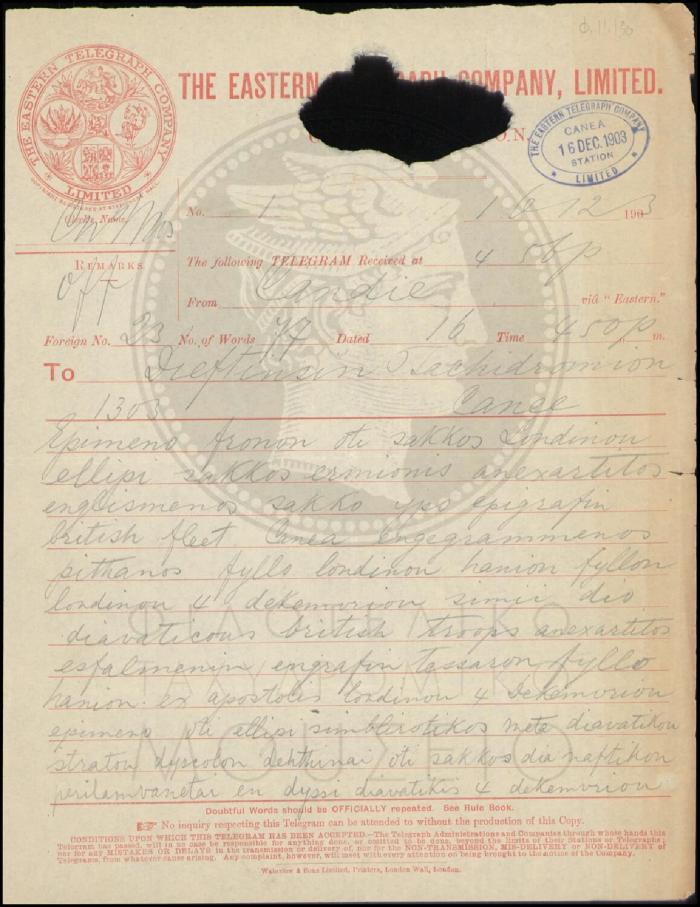 φ.11.130
THE EASTERN TELEGRAPH COMPANY LIMITED
THE EASTERN GRAPH COMPANY, LIMITED.
O.N.
THE EASTERN TELEGRAPH COMPANY
CANEA
16 DEC. 1903
STATION
LIMITED
Clerk's Name.
No. 1 16 12 1903
REMARKS
The following TELEGRAM Received at 4 56 p
off
From Candie via "Eastern."
Foreign No. 23 No. of Words 77 Dated 16 Time 4 50 p m.
To Dieftinsin Tachidromion
1303 Canee
Epimeno fronon oti sakkos Londinou
ellipi sakkos ermionis anexartitos
englismenos sakko ypo epigrafin
british fleet Canea engegrammenos
pithanos fyllo londinou hanion fyllon
londinou 4 dekemvriou simii dio
diavaticous british troops anexartitos
esfalmenin engrafin tessaron fyllo
hanion ex apostolis londinou 4 Dekemvriou
epimeno oti ellipi simblirotikos meta diavatikou
straton dyscolon dehthinai oti sakkos dia naftikon
perilamvanetai en dyssi diavatikis 4 dekemvriou
ΦΙΛΟΤΕΛΙΚΟ
ΜΟΥΣΕΙΟ
Doubtful Words should be OFFICIALLY repeated. See Rule Book.
No inquiry respecting this Telegram can be attended to without the production of this Copy.
CONDITIONS UPON WHICH THIS TELEGRAM HAS BEEN ACCEPTED.—The Telegraph Administrations and Companies through whose hands this
Telegram has passed, will in no case be responsible for anything done, or omitted to be done, beyond the limits of their Stations or Telegraphs;
nor for any MISTAKES OR DELAYS in the transmission or delivery of, nor for the NON-TRANSMISSION, MIS-DELIVERY or NON-DELIVERY of
Telegrams, from whatever cause arising. Any complaint, however, will meet with every attention on being brought to the notice of the Company.
Waterlow & Sons Limited, Printers, London Wall, London.